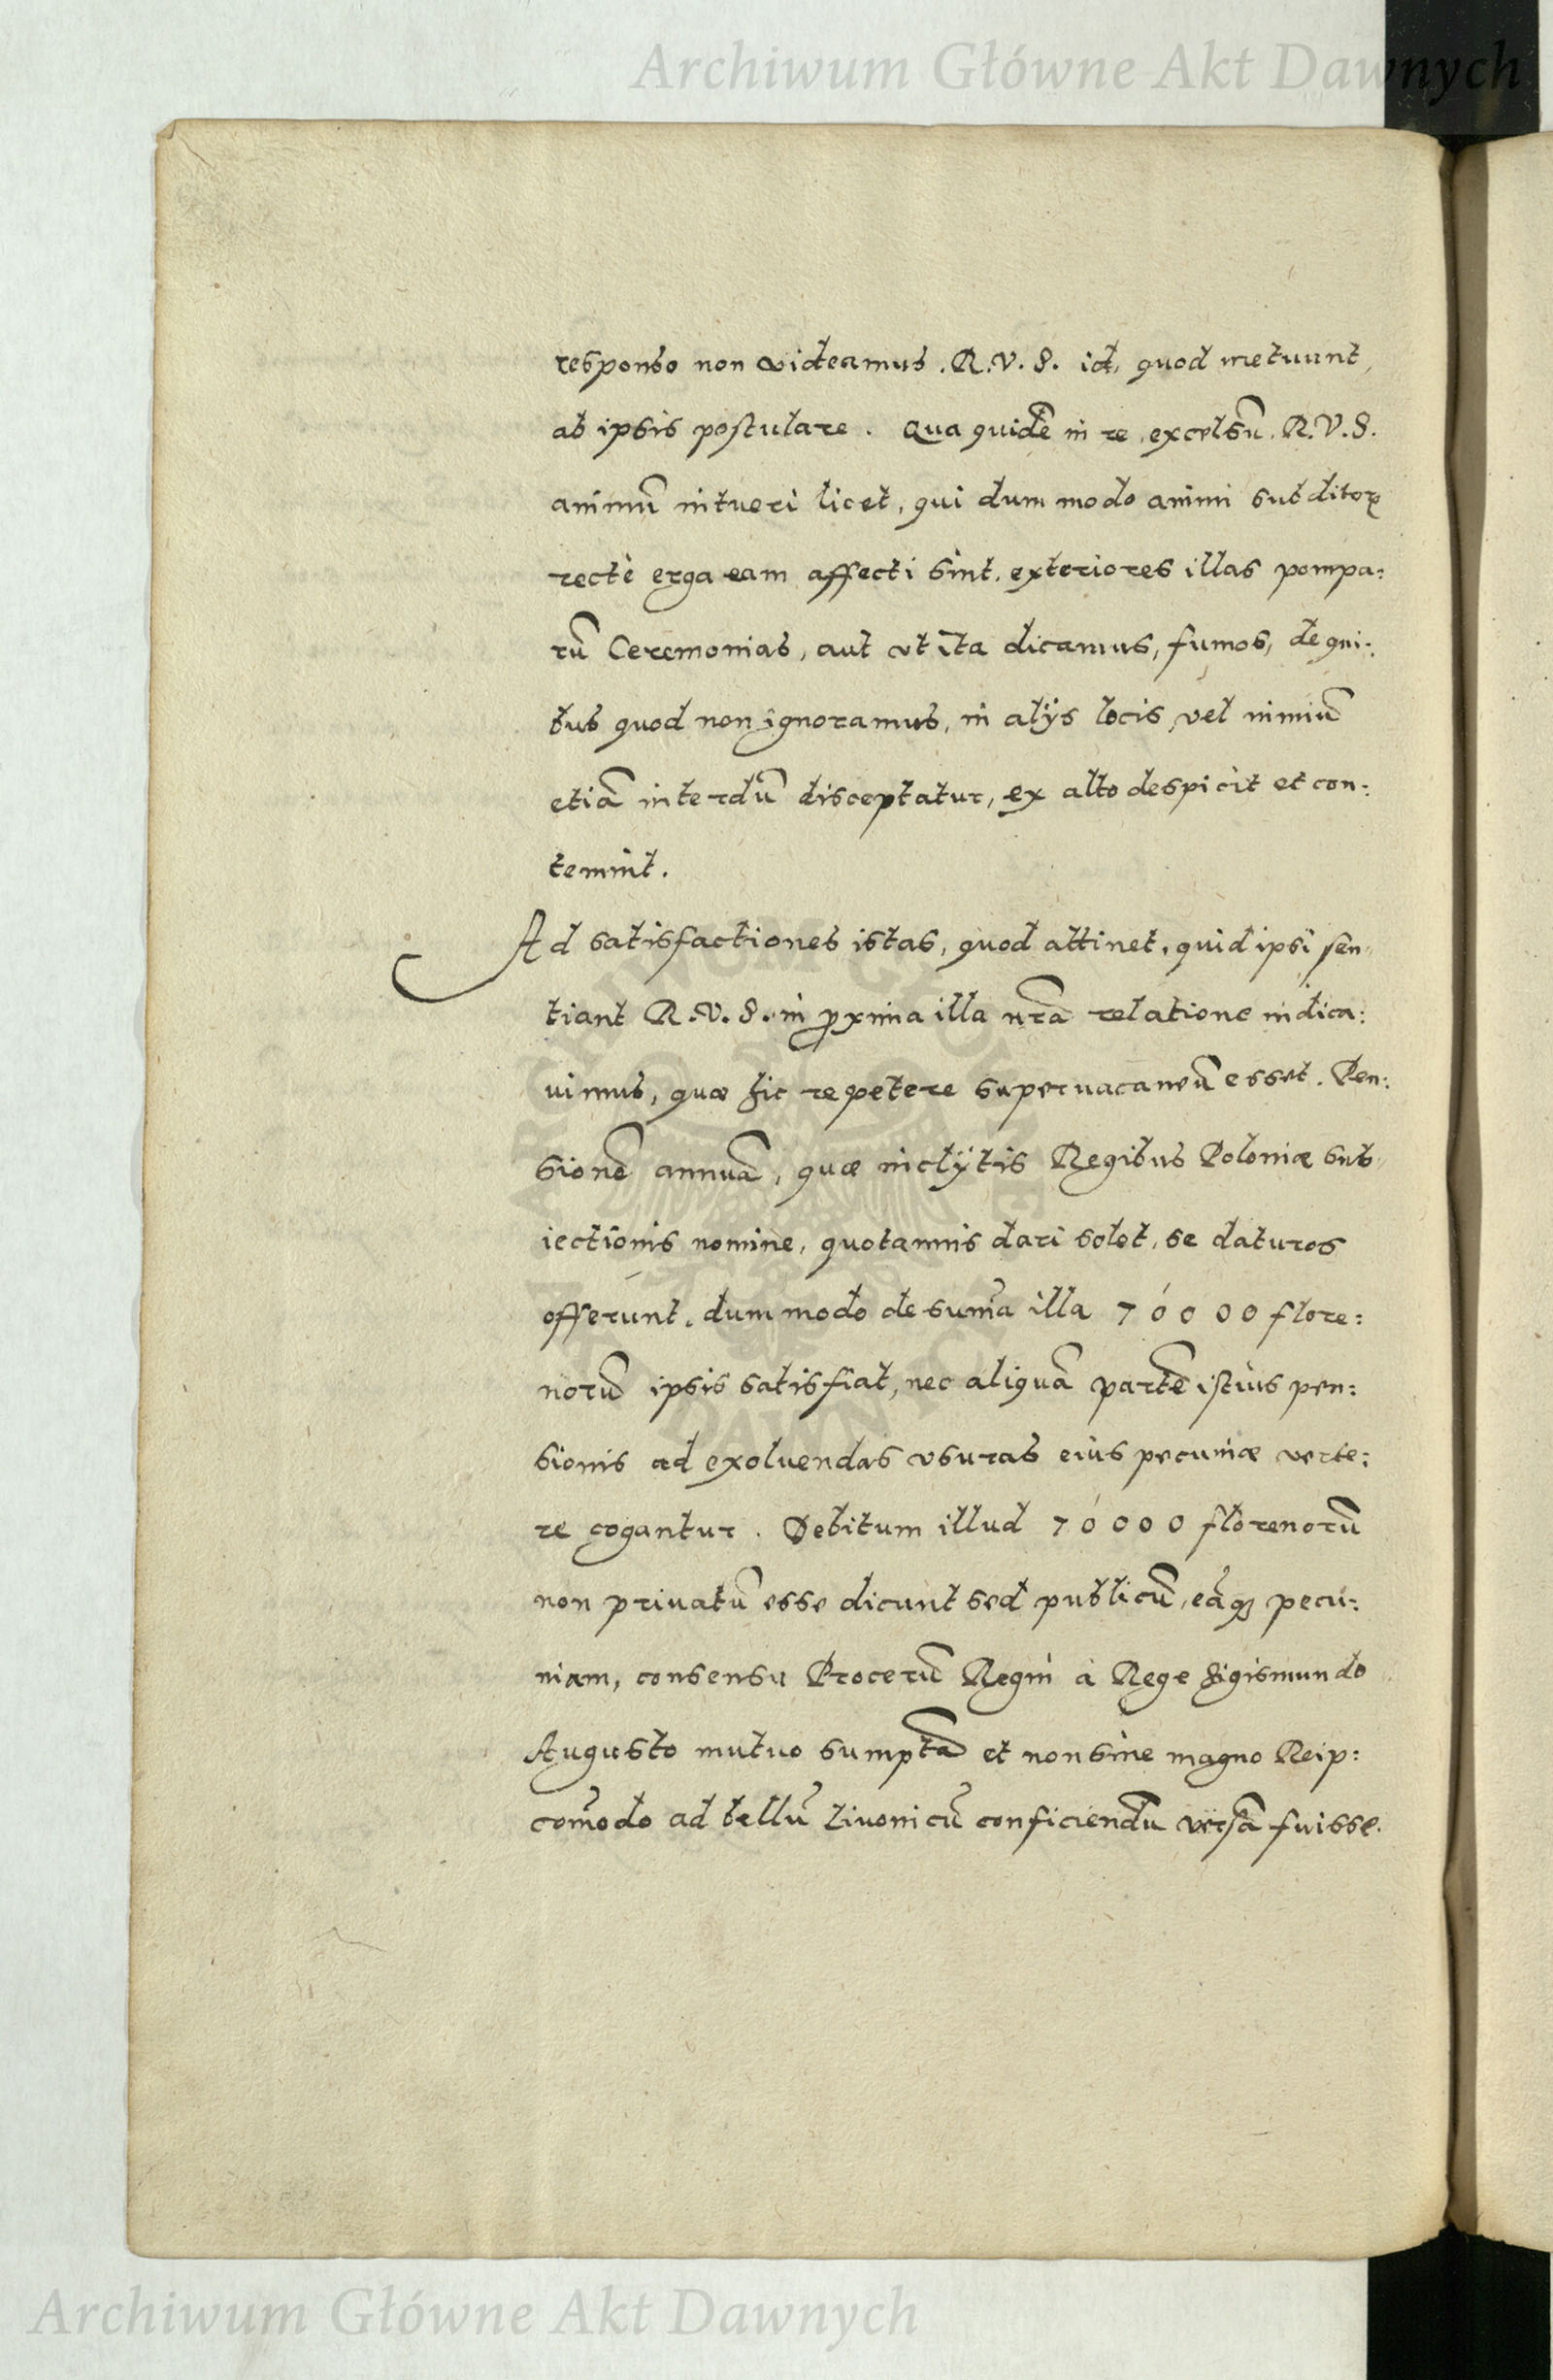 Archiwum Główne Akt Dawnych
responso non videamus .R.V.S. id, quod metuunt,
ab ipsis postulare. Qua quidẽ in re, excelsũ .R.V.S.
animũ intueri licet, qui dum modo animi subditoꝝ
rectè erga eam affecti sint, exteriores illas pompa:
rũ Ceremonias, aut vt ita dicamus, fumos, de qui:
bus quod non ignoramus, in alijs locis, vel nimiũ
etiã interdũ disceptatur, ex alto despicit et con:
temnit.
Ad satisfactiones istas, quod attinet, quid ipsi sen:
tiant R.V.S. in ꝓxima illa nr̃a relatione indica:
uimus, quæ hic repetere superuacaneũ esset. Pen:
sionẽ annuã, quæ inclÿtis Regibus Poloniæ sub:
iectionis nomine, quotannis dari solet, se daturos
offerunt, dum modo de sum̃a illa 70000 flore:
norũ ipsis satisfiat, nec aliquã partẽ istius pen:
sionis ad exoluendas vsuras eius pecuniæ verte:
re cogantur. Debitum illud 70000 florenorũ
non priuatũ esse dicunt sed publicũ, eãqꝫ pecu:
niam, consensu Procerũ Regni à Rege Sigismundo
Augusto mutuo sumptã et non sine magno Reip:
com̃odo ad bellũ Liuonicũ conficiendũ versã fuisse.
Archiwum Główne Akt Dawnych